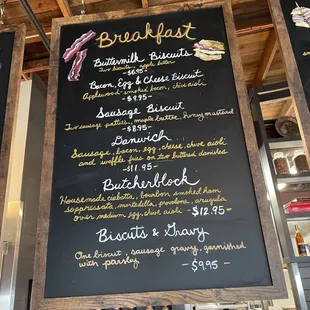 Breakfast
Buttermilk Biscuits
Two biscuits, apple butter
-$6.95-
Bacon, Egg & Cheese Biscuit
Applewood smoked bacon, chive aioli
-$9.95-
Sausage Biscuit
Two sausage patties, maple butter, honey mustard
-$8.95-
Danwich
Sausage, bacon, egg, cheese, chive aioli
and waffle fries on two buttered danishes
-$11.95-
Butcherblock
Housemade ciabatta, bourbon smoked ham
sopressata, mortadella, provolone, arugula
over medium egg, chive aioli -$12.95-
Biscuits & Gravy
One biscuit, sausage gravy, garnished
with parsley -$9.95-